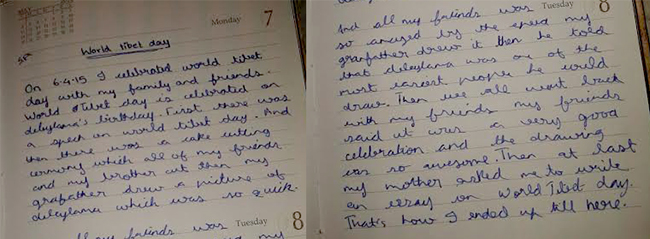 Monday 7
World tibet day
On 6.4.15 I celebrated world tibet
day with my family and friends.
World Tibet day is celebrated on
delaylama's birthday. First there was
a speech on world tibet day. And
then there was a cake cutting
cermony which all of my friends
and my brother cut then my
grafather drew a picture of
delaylama which was so quick.
Tuesday 8
friends was
my
Tuesday 8
And all my friends was
so amused by the speed my
granfather drew it then he told
that delaylama was one of the
most easiest people he could
draw. Then we all went back
with my friends my friends
said it was a very good
celebration and the drawing
was so awesome. Then at last
my mother asked me to write
an essay on World Tibet day.
That's how I ended up till here.